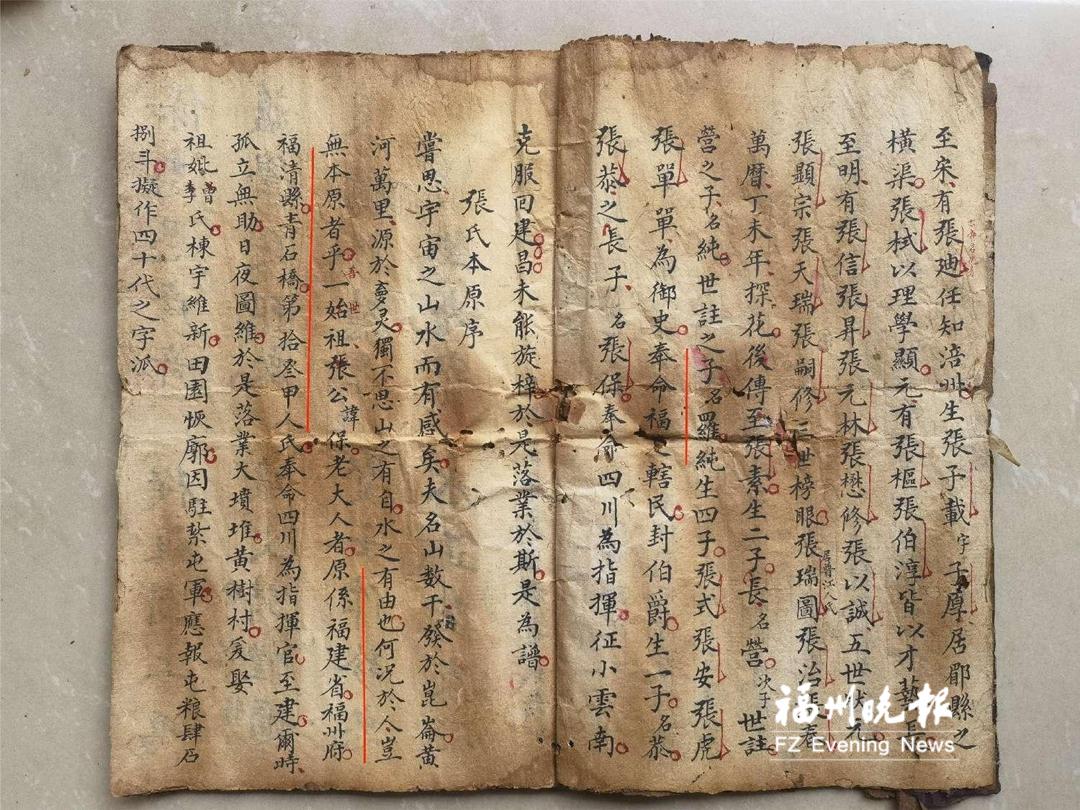 至宋有張廸任知涪州生張子載字子厚居郿縣之
橫渠張栻以理學顯元有張樞張伯淳皆以才藝
至明有張信張昇張元林張懋修張以誠五世狀元
張顯宗張天瑞張嗣修三世榜眼張瑞圖張治張春
萬曆丁未年探花後傳至張素生二子長名營次子世註
營之子名純世註之子名羅純生四子張式張安張虎
張單單為御史奉命福之轄民封伯爵生一子名恭
張恭之長子名張保奉命四川為指揮征小雲南
克服回建昌未能旋梓於是落業於斯是為譜
張氏本原序
嘗思宇宙之山水而有感矣夫名山數千發於崑崙黃
河萬里源於獨不思山之有自水之有由也何況於今豈
無本原者乎吾一世始祖張公諱保老大人者原係福建省福州府
福清縣青石橋第拾叄甲人氏奉命四川為指揮官至建爾時
孤立無助日夜圖維於是落業大墳堆黃樹村爰娶
祖妣曾李氏棟宇維新田園恢廓因駐紮屯軍應報屯粮肆石
捌斗擬作四十代之字派
福州晚報
FZ Evening News